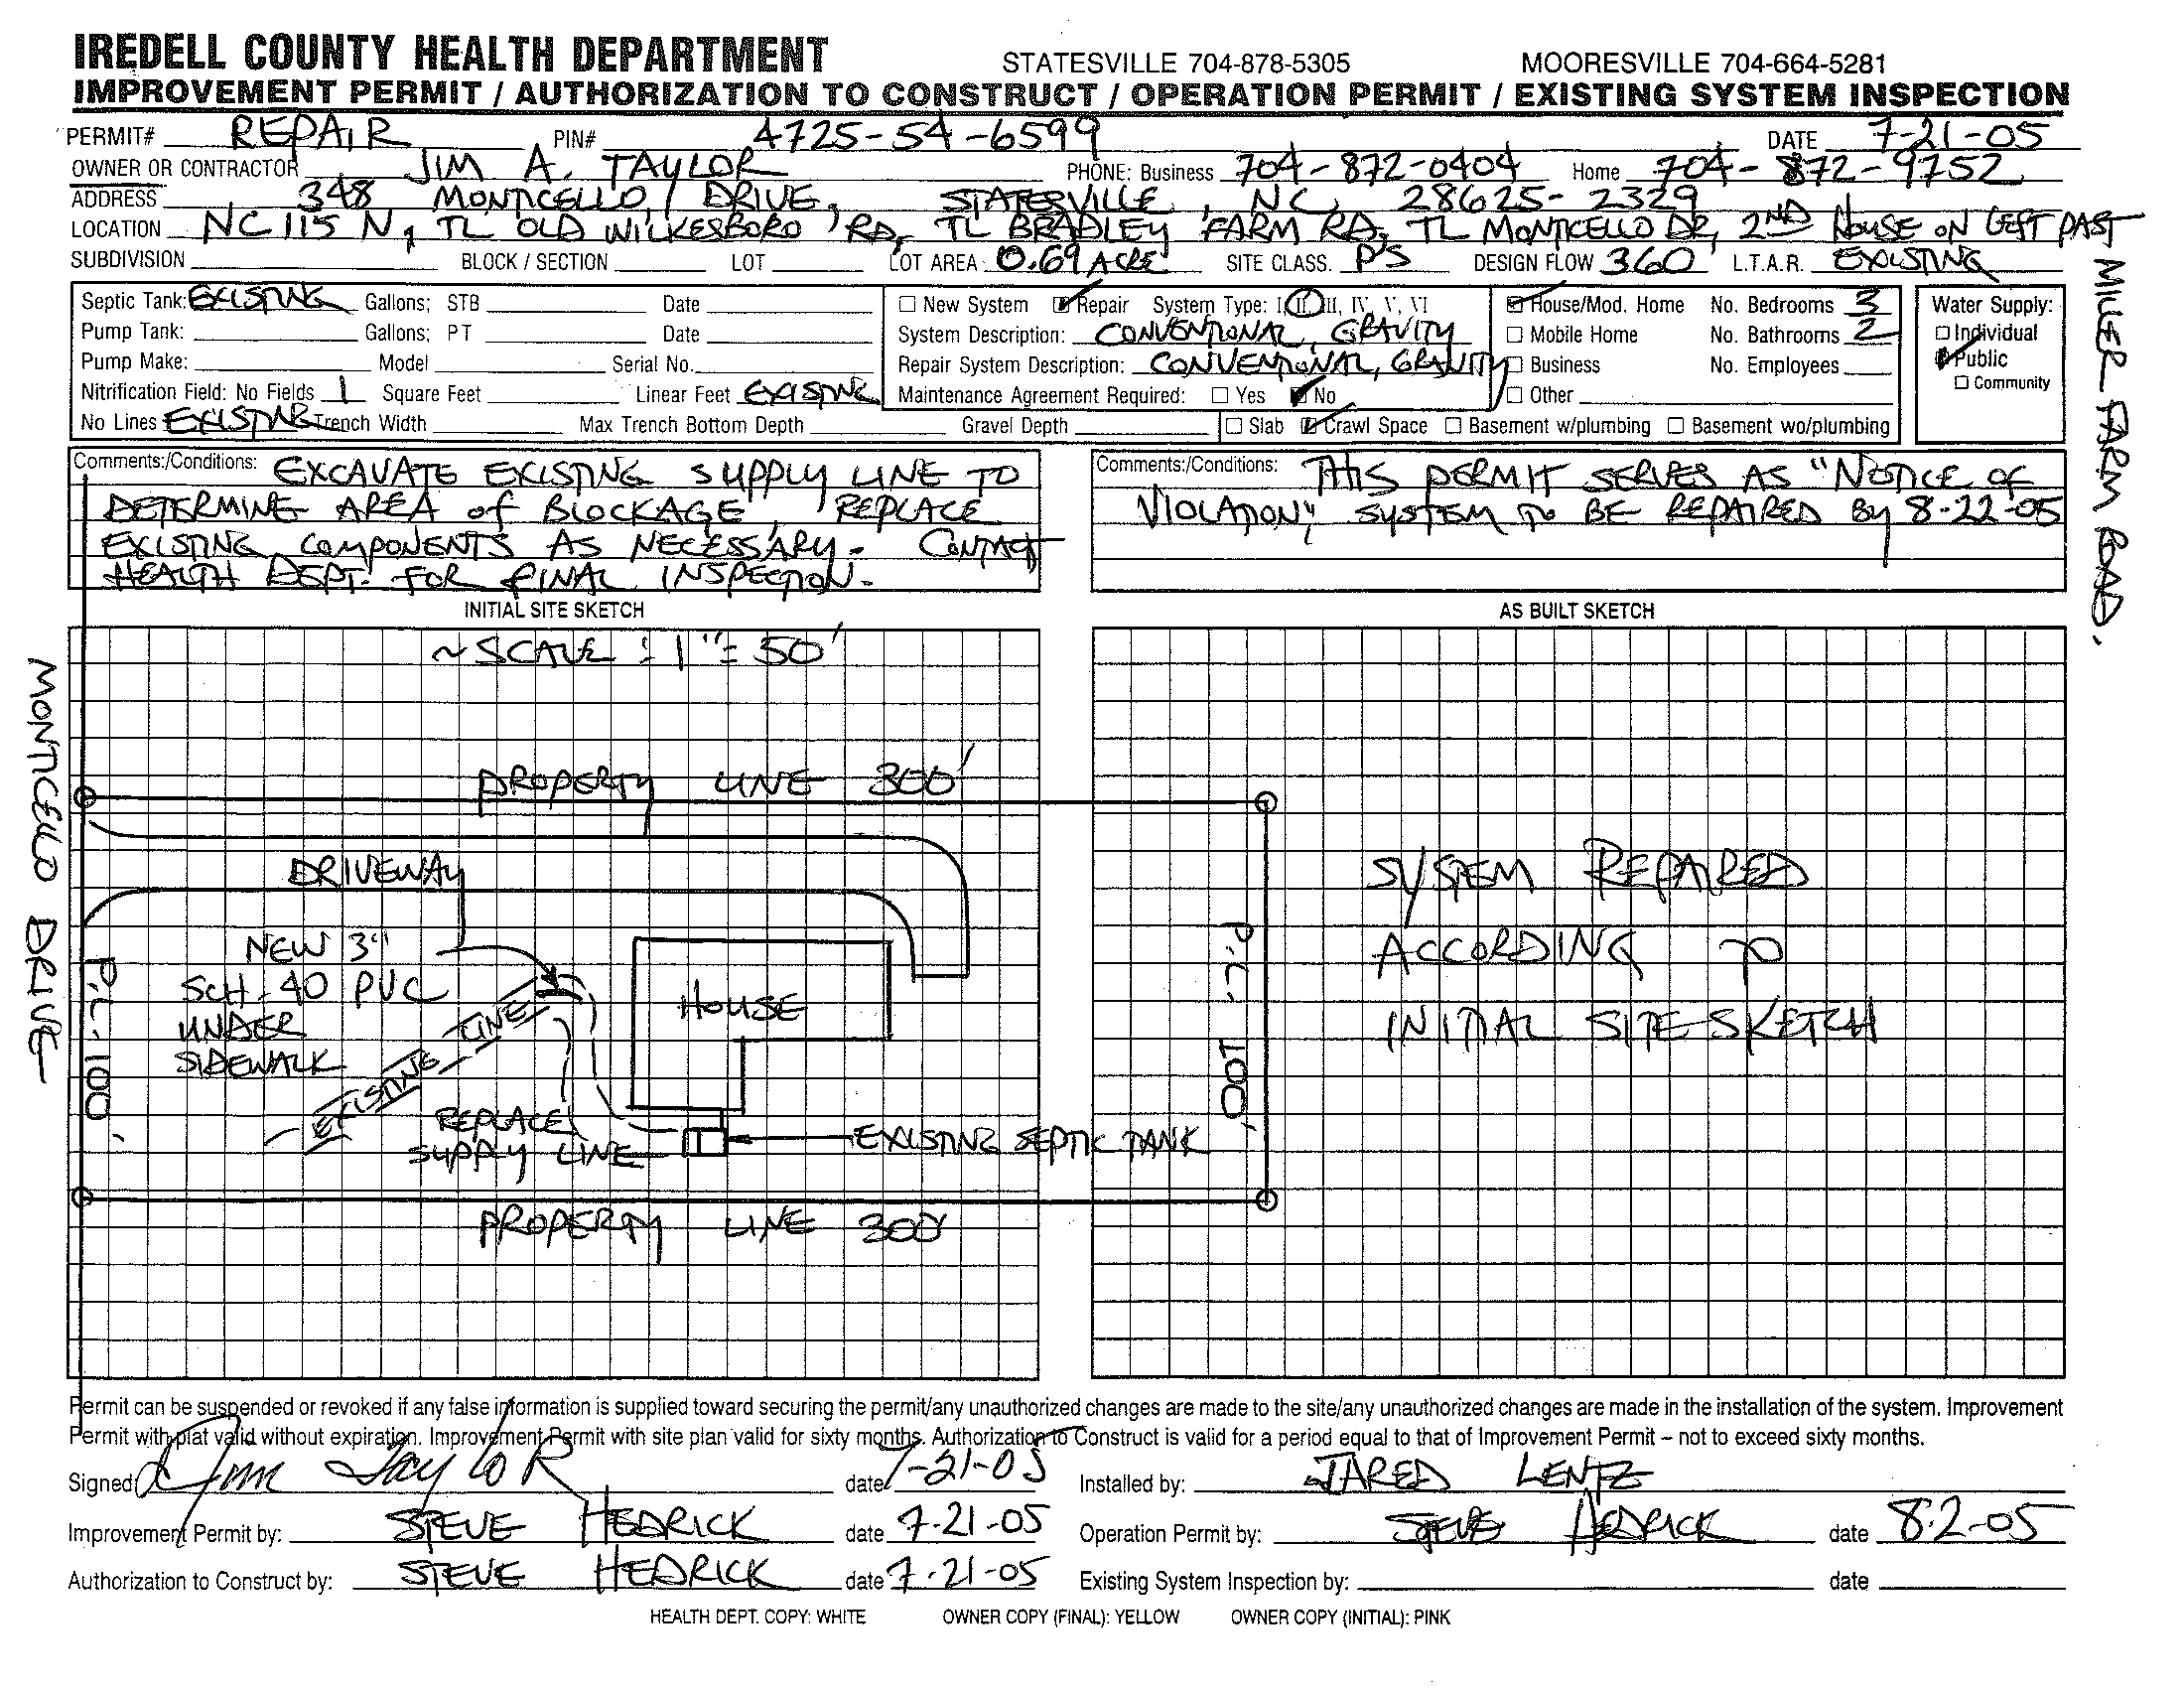 IREDELL COUNTY HEALTH DEPARTMENT STATESVILLE 704-878-5305 MOORESVILLE 704-664-5281
IMPROVEMENT PERMIT / AUTHORIZATION TO CONSTRUCT / OPERATION PERMIT / EXISTING SYSTEM INSPECTION
PERMIT# REPAIR PIN# 4725-54-6599 DATE 7-21-05
OWNER OR CONTRACTOR JIM A. TAYLOR PHONE: Business 704-872-0404 Home 704-872-9752
ADDRESS 348 MONTICELLO DRIVE, STATESVILLE, NC 28625-2329
LOCATION NC 115 N, TL OLD WILKESBORO RD, TL BRADLEY FARM RD, TL MONTICELLO DR, 2ND HOUSE ON LEFT PAST
MILLER FARM ROAD.
SUBDIVISION BLOCK / SECTION LOT LOT AREA 0.69 ACRE SITE CLASS. PS DESIGN FLOW 360 L.T.A.R. EXISTING
Septic Tank: EXISTING Gallons; STB Date
Pump Tank: Gallons; PT Date
Pump Make: Model Serial No.
Nitrification Field: No Fields 1 Square Feet Linear Feet EXISTING
No Lines EXISTING Trench Width Max Trench Bottom Depth Gravel Depth
New System Repair System Type: I, II, III, IV, V, VI
System Description: CONVENTIONAL, GRAVITY
Repair System Description: CONVENTIONAL, GRAVITY
Maintenance Agreement Required: Yes No
House/Mod. Home No. Bedrooms 3
Mobile Home No. Bathrooms 2
Business No. Employees
Other
Slab Crawl Space Basement w/plumbing Basement wo/plumbing
Water Supply:
Individual
Public
Community
Comments:/Conditions: EXCAVATE EXISTING SUPPLY LINE TO
DETERMINE AREA OF BLOCKAGE, REPLACE
EXISTING COMPONENTS AS NECESSARY. CONTACT
HEALTH DEPT. FOR FINAL INSPECTION.
Comments:/Conditions: THIS PERMIT SERVES AS "NOTICE OF
VIOLATION", SYSTEM TO BE REPAIRED BY 8-22-05
INITIAL SITE SKETCH
~ SCALE : 1" = 50'
MONTICELLO DRIVE
PROPERTY LINE 300'
DRIVEWAY
NEW 3"
SCH-40 PVC
UNDER
SIDEWALK
P.L. 100'
EXISTING LINE
HOUSE
REPLACE
SUPPLY LINE
EXISTING SEPTIC TANK
P.L. 100'
PROPERTY LINE 300'
AS BUILT SKETCH
SYSTEM REPAIRED
ACCORDING TO
INITIAL SITE SKETCH
Permit can be suspended or revoked if any false information is supplied toward securing the permit/any unauthorized changes are made to the site/any unauthorized changes are made in the installation of the system. Improvement
Permit with plat valid without expiration. Improvement Permit with site plan valid for sixty months. Authorization to Construct is valid for a period equal to that of Improvement Permit – not to exceed sixty months.
Signed: Jim Taylor date 7-21-05 Installed by: JARED LENTZ
Improvement Permit by: STEVE HEDRICK date 7-21-05 Operation Permit by: STEVE HEDRICK date 8-2-05
Authorization to Construct by: STEVE HEDRICK date 7-21-05 Existing System Inspection by: date
HEALTH DEPT. COPY: WHITE OWNER COPY (FINAL): YELLOW OWNER COPY (INITIAL): PINK